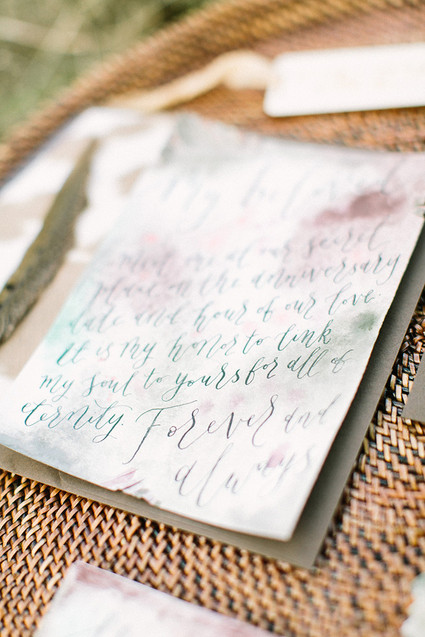 My beloved
meet me at our secret
place on the anniversary
date and hour of our love.
it is my honor to link
my soul to yours for all of
eternity. Forever and
always